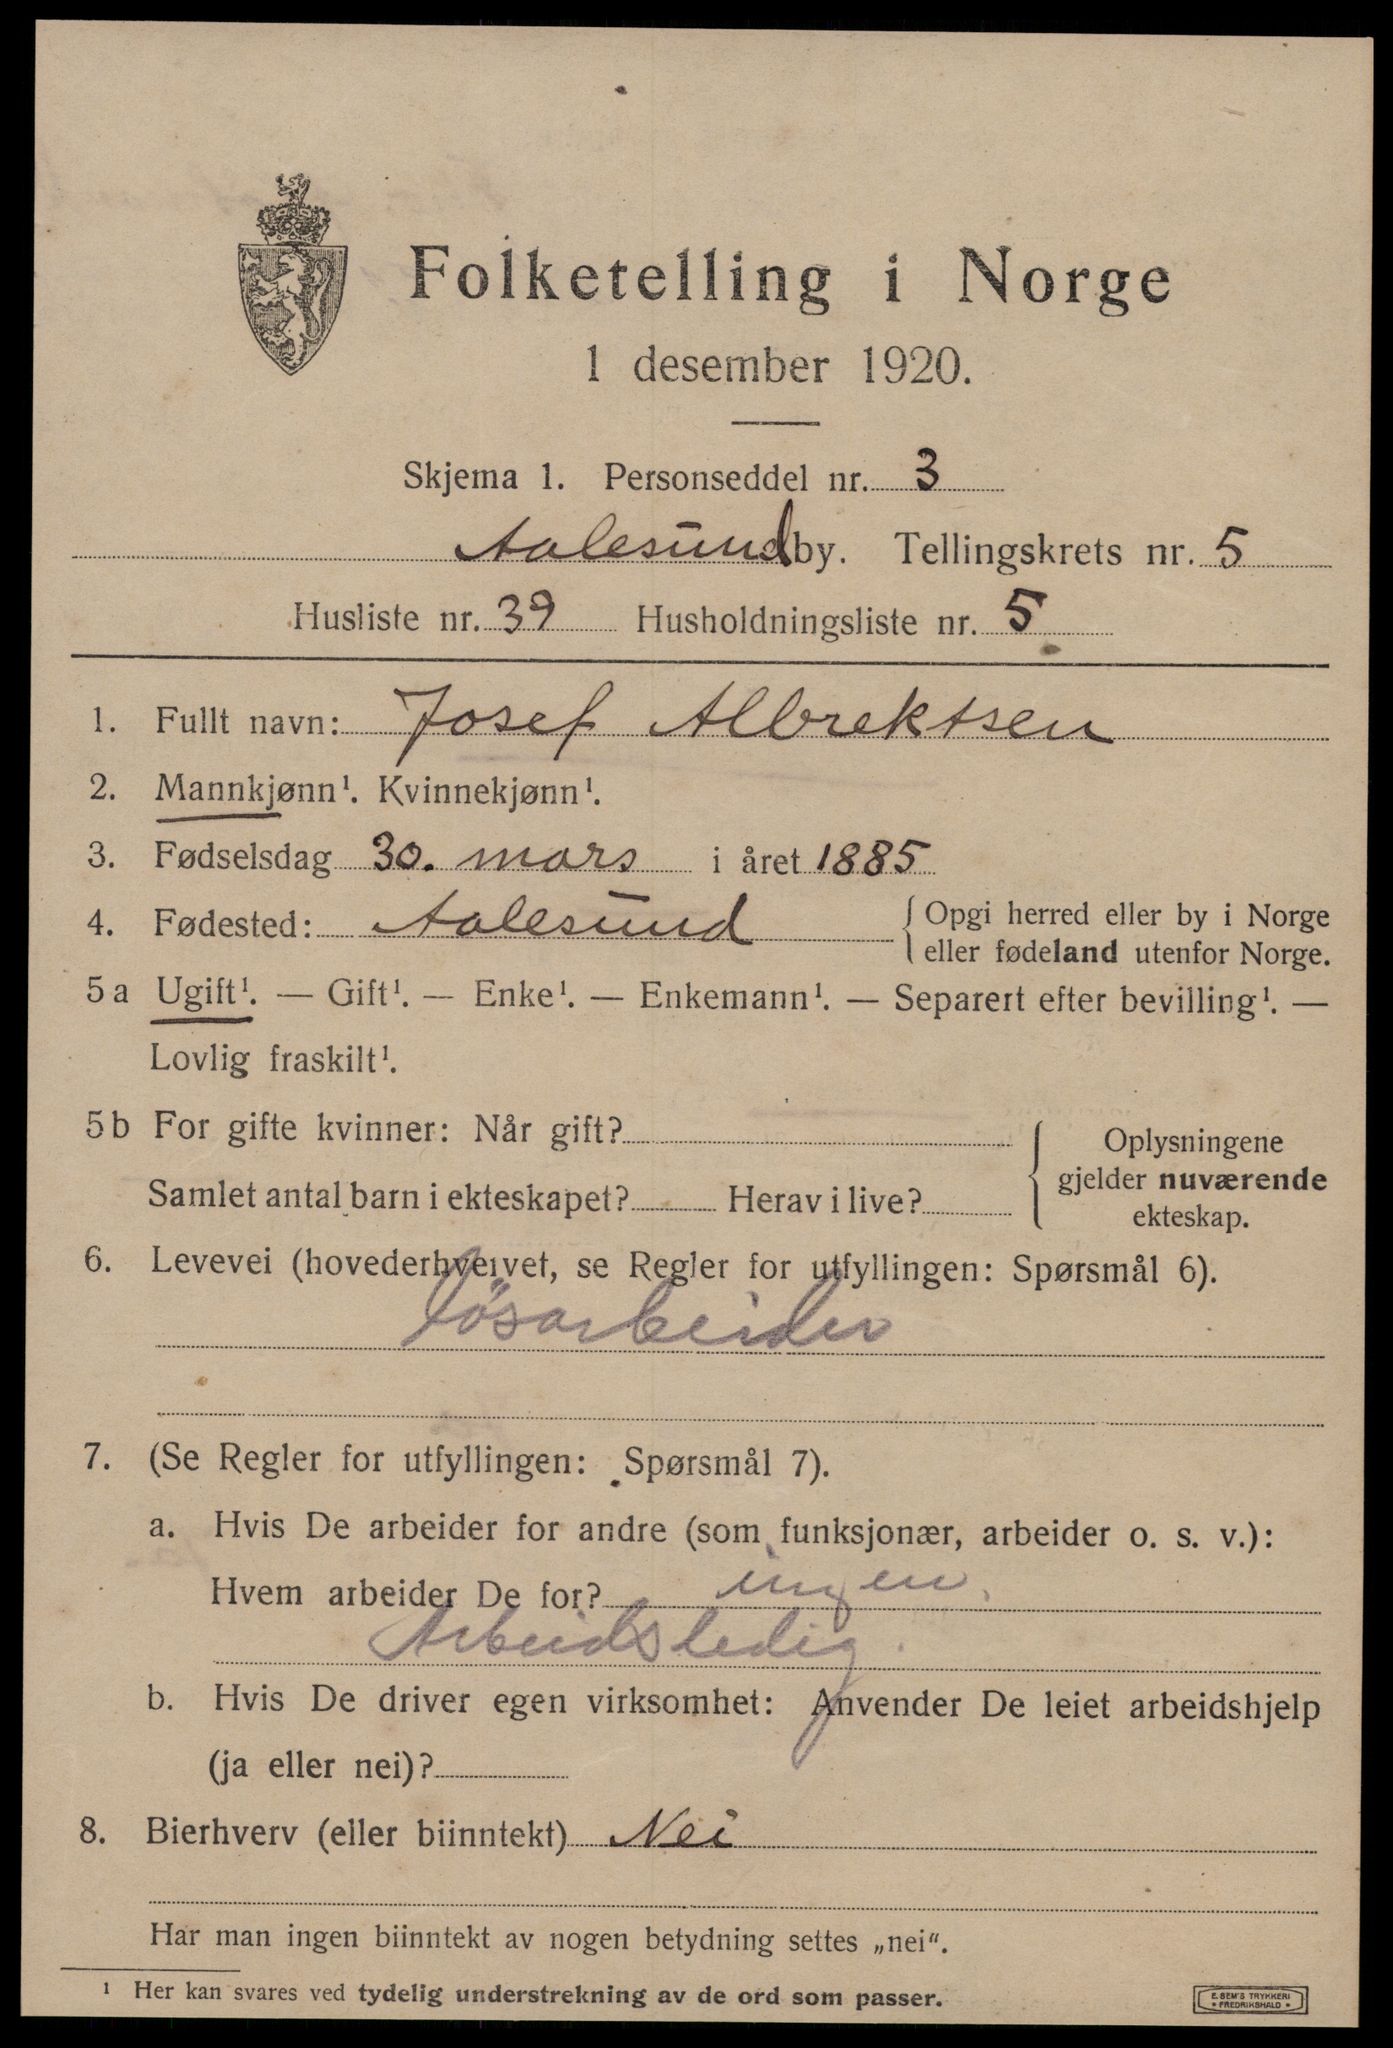 Folketelling i Norge
1 desember 1920.
Skjema 1. Personseddel nr. 3
Aalesund by. Tellingskrets nr. 5
Husliste nr. 39 Husholdningsliste nr. 5
1. Fullt navn: Josef Albrektsen
2. Mannkjønn¹. Kvinnekjønn¹.
3. Fødselsdag 30. mars i året 1885
4. Fødested: Aalesund { Opgi herred eller by i Norge
eller fødeland utenfor Norge.
5a Ugift¹. — Gift¹. — Enke¹. — Enkemann¹. — Separert efter bevilling¹. —
Lovlig fraskilt¹.
5b For gifte kvinner: Når gift?
Samlet antal barn i ekteskapet? Herav i live?
{ Oplysningene
gjelder nuværende
ekteskap.
6. Levevei (hovederhvervet, se Regler for utfyllingen: Spørsmål 6).
Løsarbeider
7. (Se Regler for utfyllingen: Spørsmål 7).
a. Hvis De arbeider for andre (som funksjonær, arbeider o. s. v.):
Hvem arbeider De for? ingen.
Arbeidsledig.
b. Hvis De driver egen virksomhet: Anvender De leiet arbeidshjelp
(ja eller nei)?
8. Bierhverv (eller biinntekt) Nei
Har man ingen biinntekt av nogen betydning settes „nei“.
¹ Her kan svares ved tydelig understrekning av de ord som passer.
E. SEM'S TRYKKERI
* FREDRIKSHALD *